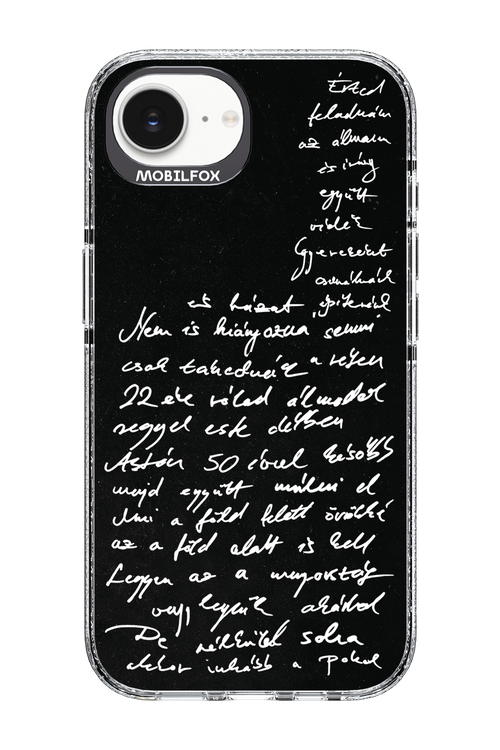 MOBILFOX
Érted
feladnám
az álmaim
és irány
együtt
vidék
Gyerekeket
csinálnánk
és házat építenénk
Nem is hiányozna semmi
csak takarodnánk a réten
22 éve rólad álmodok
reggel este délben
Aztán 50 évvel később
majd együtt múlni el
Ami a föld felett örökké
az a föld alatt is kell
Legyen az a mennyország
vagy legyünk akárhol
De nélküled soha
akkor inkább a pokol